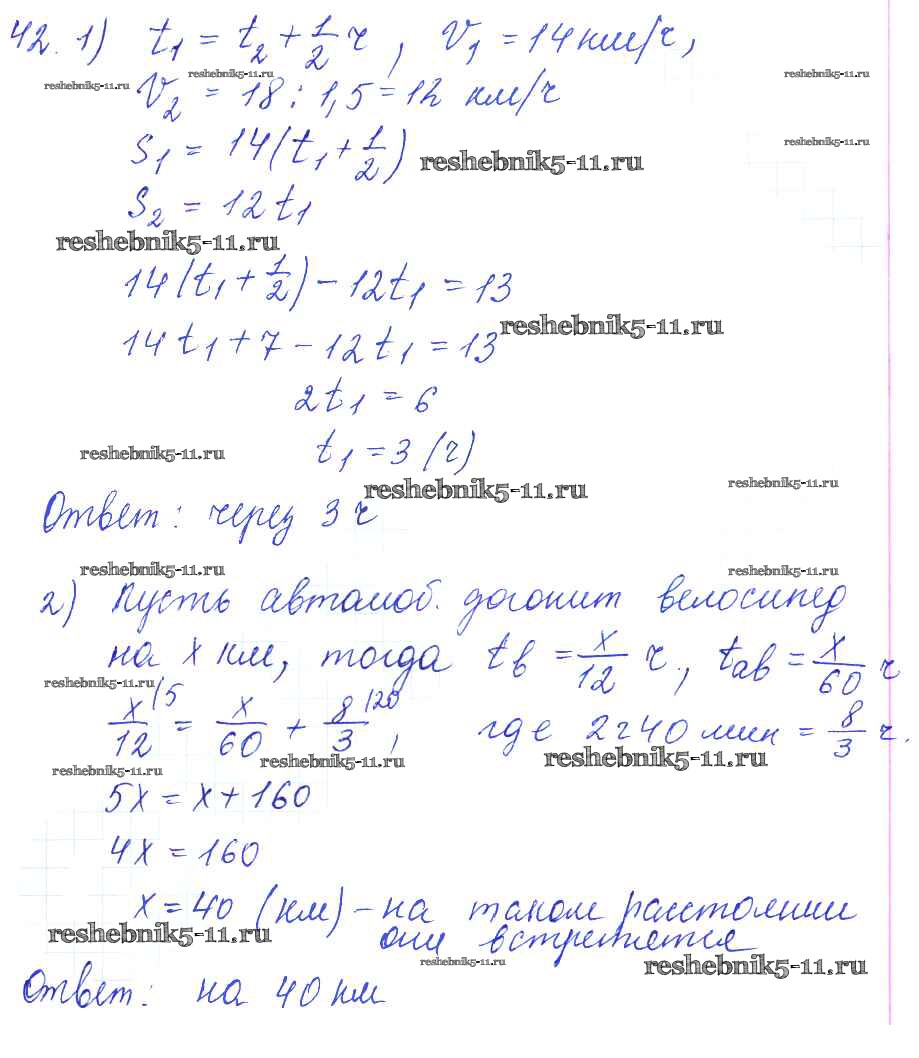 42. 1) t₁ = t₂ + 1/2 ч, V₁ = 14 км/ч,
reshebnik5-11.ru reshebnik5-11.ru reshebnik5-11.ru
V₂ = 18 : 1,5 = 12 км/ч
S₁ = 14(t₁ + 1/2) reshebnik5-11.ru reshebnik5-11.ru
S₂ = 12t₁
reshebnik5-11.ru
14(t₁ + 1/2) - 12t₁ = 13
reshebnik5-11.ru
14t₁ + 7 - 12t₁ = 13
2t₁ = 6
reshebnik5-11.ru t₁ = 3 (ч)
reshebnik5-11.ru reshebnik5-11.ru
Ответ: через 3 ч
reshebnik5-11.ru reshebnik5-11.ru
2) Пусть автомоб. догонит велосипед
на x км, тогда tв = x/12 ч, tав = x/60 ч
reshebnik5-11.ru
x/12 (5 = x/60 + 8/3 (20, где 2ч40 мин = 8/3 ч.
reshebnik5-11.ru reshebnik5-11.ru reshebnik5-11.ru
5x = x + 160
4x = 160
x = 40 (км) - на таком расстоянии
reshebnik5-11.ru они встретятся
reshebnik5-11.ru reshebnik5-11.ru
Ответ: на 40 км